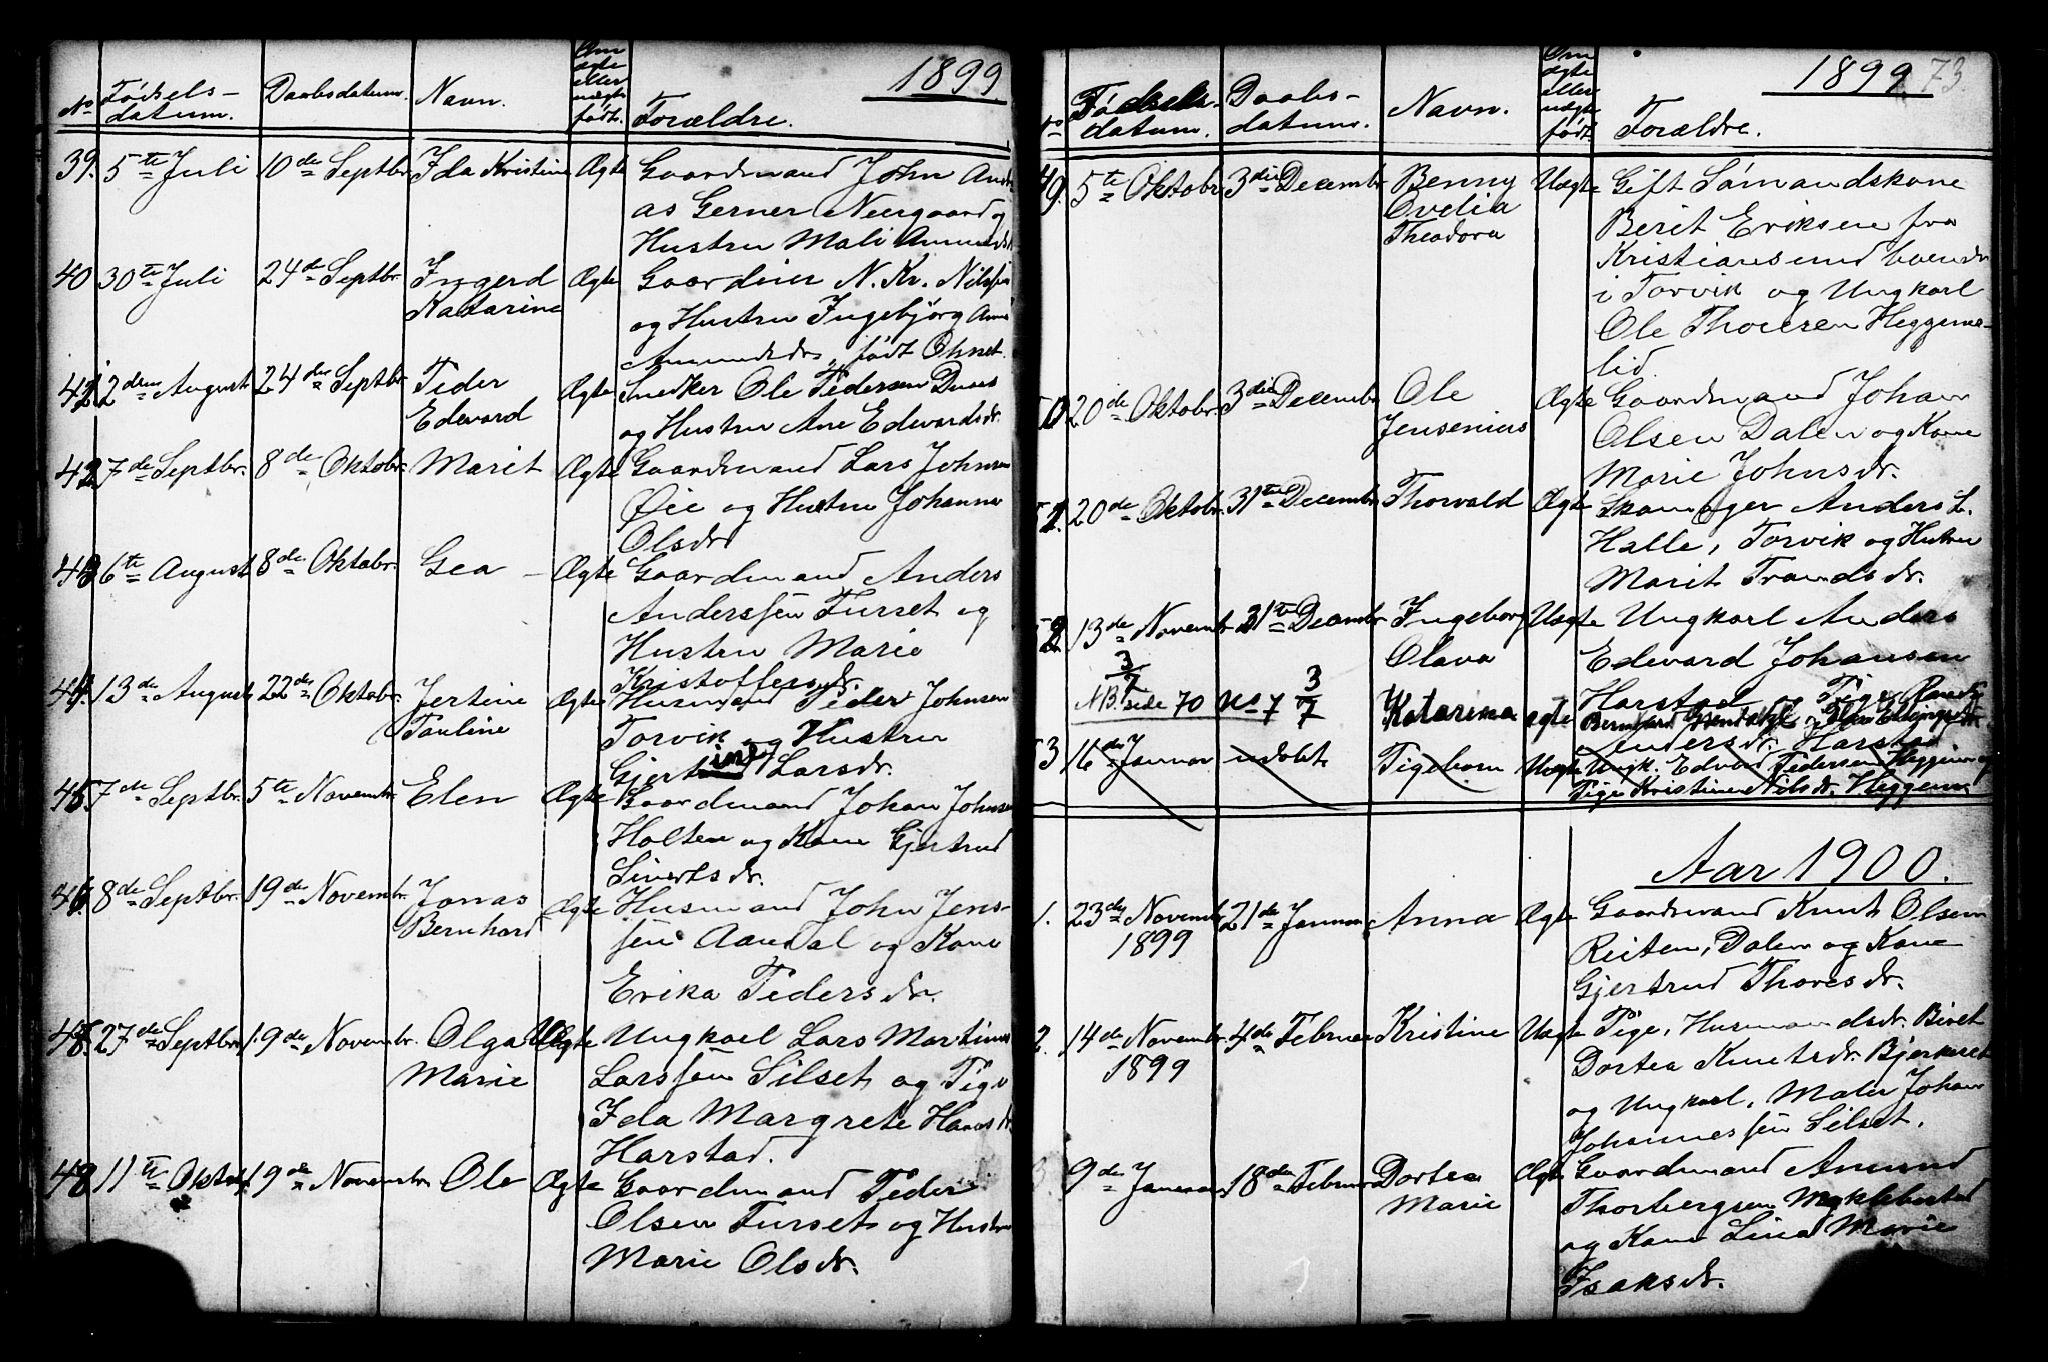 1899
No Fødsels-datum. Daabsdatum. Navn. Om ægte eller uægte født. Forældre.
39. 5te Juli 10de Septbr. Ida Kristine Ægte Gaardmand John
as Gerner Neergaard og
Hustru Mali
40 30te Juli 24de Septbr. Ingerd Ægte Gaardeier N. Kr. Nilssen
Katarina og Hustru Ingebjörg
født
41. 2den August 24de Septbr. Peder Ægte Snedker Ole Pedersen
Edevard og Hustru Ane Edvardsdr.
42. 7de Septbr. 8de Oktobr. Marit Ægte Gaardmand Lars Johnsen
Øie og Hustru Johanna
Olsdr
43. 6te August 8de Oktobr. Gea – Ægte Gaardmand Anders
Anderssen Furset og
Hustru Marie
Kristoffersdr.
44. 13de August 22de Oktobr. Jertine Ægte Husmand Peder Johnsen
Pauline Torvik og Hustru
Larsdr.
45. 7de Septbr. 5te Novembr. Elen Ægte Gaardmand Johan Johnsen
Holten og Kone Gjertrud
Sivertsdr.
46. 8de Septbr. 19de Novembr. Jonas Ægte Husmand John Jens-
Bernhard sen Aandal og Kone
Erika Pedersdr.
27de Septbr. 19de Novembr. Olga Uægte Ungkarl Lars Martinus
Marie Larssen Silset og Pige
Ida Margrete Hansdr
Harstad.
48. 11te Oktobr. 19de Novembr. Ole Ægte Gaardmand Peder
Olsen Furset og Hustru
Marie Olsdr.
1899 73.
No Fødsels-datum. Daabs-datum. Navn. Om ægte eller uægte født Forældre.
49. 5te Oktobr. 3die Decembr. Benny Uægte Gift Sømandskone
Ovedia Berit Eriksen fra
Theodora Kristiansund boende
i Torvik og Ungkarl
Ole Thoresen Heggeme-
lid.
50. 20de Oktobr. 3die Decembr. Ole Ægte Gaardmand Johan
Jensenius Olsen Dalen og Kone
Marie Johnsdr.
51. 20de Oktobr. 31te Decembr. Thorvald Ægte Skomager Anders L.
Halle, Torvik og Hustru
Marit Trondsdr.
52. 13de Novembr. 31te Decembr. Ingeborg Uægte Ungkarl Anders
Olava Edevard Johansen
Harstad og Pige Randi
Andersdr. Harstad
3/7 NB. side 70 No 7 3/7 Katarina ægte Bernhard
53 16de Januar udøbt Pigebarn Uægte Ungk. Edvard Pedersen Heggem og
Pige Kristine Nilsdr. Heggem
Aar 1900.
1. 23de Novembr. 21de Januar Anna Ægte Gaardmand Knut Olsen
1899 Reiten, Dalen og Kone
Gjertrud Thoresdr.
2. 14de Novembr. 4de Februar Kristine Uægte Pige, Husmandsdr. Beret
1899 Dortea Knutsdr. Bjerkeset
og Ungkarl, Maler Johan
Johannessen Silset.
3. 9de Januar 18de Februar Dortea Ægte Gaardmand Amund
Marie Thorbergsen Myklebostad
og Kone Lina Marie
Isaksdr.